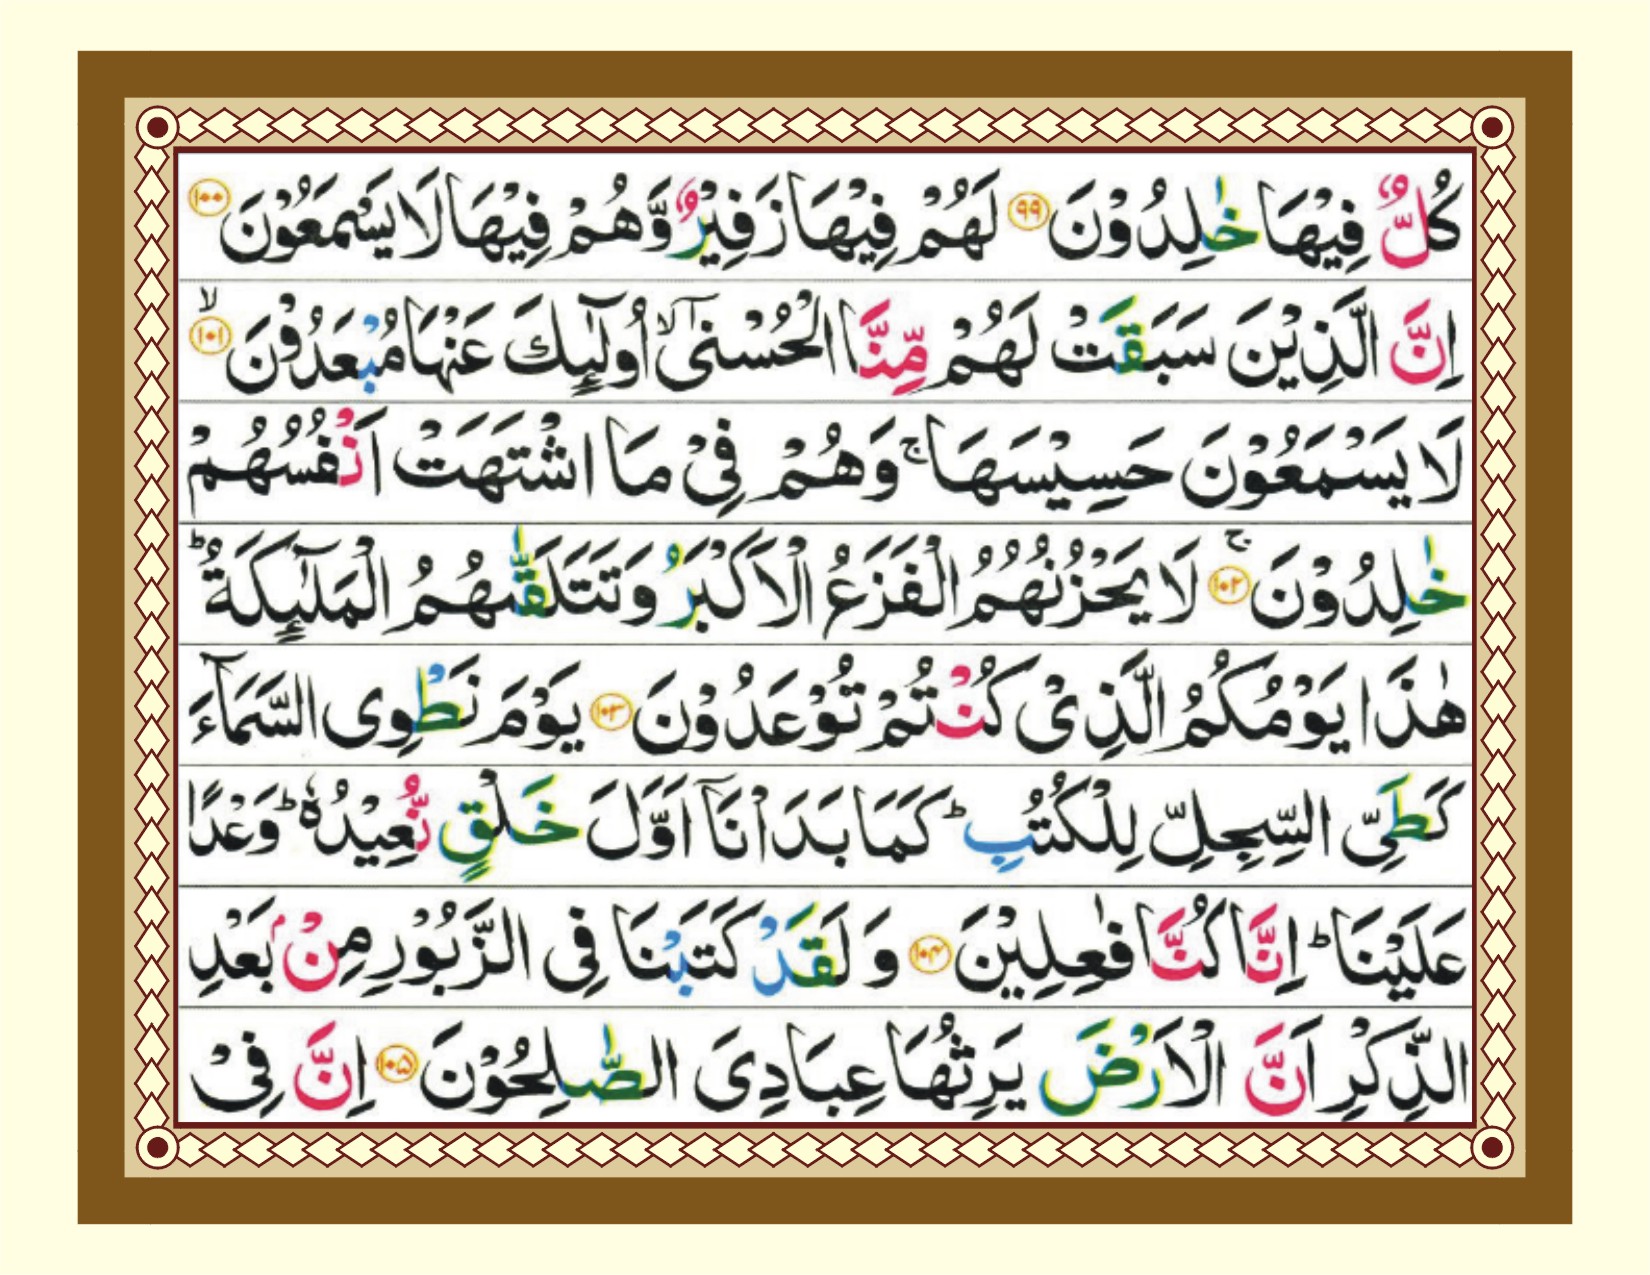 كُلٌّ فِيْهَا خٰلِدُوْنَ ۹۹ لَهُمْ فِيْهَا زَفِيْرٌ وَّهُمْ فِيْهَا لَا يَسْمَعُوْنَ ۱۰۰
اِنَّ الَّذِيْنَ سَبَقَتْ لَهُمْ مِّنَّا الْحُسْنٰىۤ ۙ اُولٰٓئِكَ عَنْهَا مُبْعَدُوْنَ ۙ ۱۰۱
لَا يَسْمَعُوْنَ حَسِيْسَهَا ۚ وَهُمْ فِيْ مَا اشْتَهَتْ اَنْفُسُهُمْ
خٰلِدُوْنَ ۚ ۱۰۲ لَا يَحْزُنُهُمُ الْفَزَعُ الْاَكْبَرُ وَتَتَلَقّٰىهُمُ الْمَلٰٓئِكَةُ ؕ
هٰذَا يَوْمُكُمُ الَّذِيْ كُنْتُمْ تُوْعَدُوْنَ ۱۰۳ يَوْمَ نَطْوِى السَّمَآءَ
كَطَيِّ السِّجِلِّ لِلْكُتُبِ ؕ كَمَا بَدَاْنَاۤ اَوَّلَ خَلْقٍ نُّعِيْدُهٗ ؕ وَعْدًا
عَلَيْنَا ؕ اِنَّا كُنَّا فٰعِلِيْنَ ۱۰۴ وَ لَقَدْ كَتَبْنَا فِى الزَّبُوْرِ مِنْۢ بَعْدِ
الذِّكْرِ اَنَّ الْاَرْضَ يَرِثُهَا عِبَادِىَ الصّٰلِحُوْنَ ۱۰۵ اِنَّ فِيْ